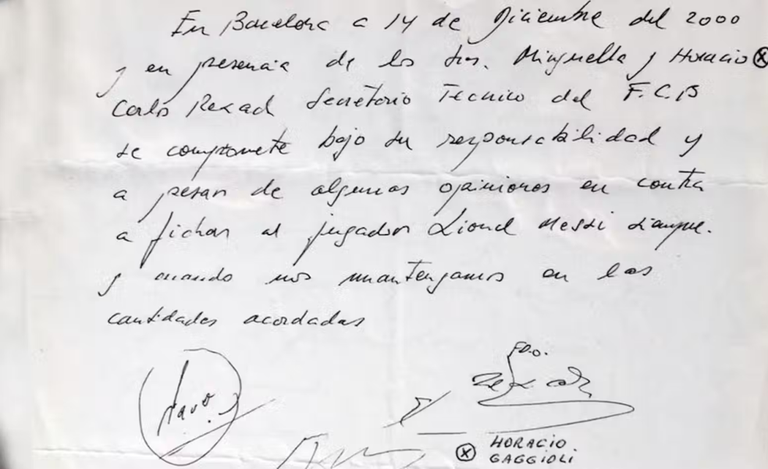 En Barcelona a 14 de Diciembre del 2000
y en presencia de los srs. Minguella y Horacio ⓧ
Carlos Rexach Secretario Tecnico del F.C.B
se compromete bajo su responsabilidad y
a pesar de algunas opiniones en contra
a fichar al jugador Lionel Messi siempre.
y cuando nos mantengamos en las
cantidades acordadas
Fdo.
ⓧ HORACIO
GAGGIOLI